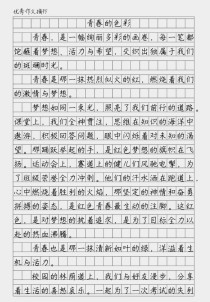 优秀作文摘抄
青春的色彩
青春,是一幅绚丽多彩的画卷,每一笔都
饱蘸着梦想、活力与希望,交织出独属于我们
的斑斓时光。
青春是那一抹热烈似火的红,燃烧着我们
的激情与梦想。
梦想如同一束光,照亮了我们前行的道路。
课堂上,我们全神贯注,思维在知识的海洋中
遨游。积极回答问题,眼中闪烁着对未知的渴
望。那踊跃举起的手,是红色梦想的旗帜在飞
扬。运动会上,赛道上的健儿们风驰电掣,为
了班级荣誉全力冲刺。他们的汗水洒在跑道上,
心中燃烧着胜利的火焰,那坚定的神情和奋勇
拼搏的姿态,是红色青春最生动的注脚。这红
色,是对梦想的执着追求,是为了目标全力以
赴的热血沸腾。
青春也是那一抹清新如叶的绿,洋溢着生
机与活力。
校园的林荫道上,我们与好友漫步,分享
着生活的喜怒哀乐。一起为了一次考试的失利